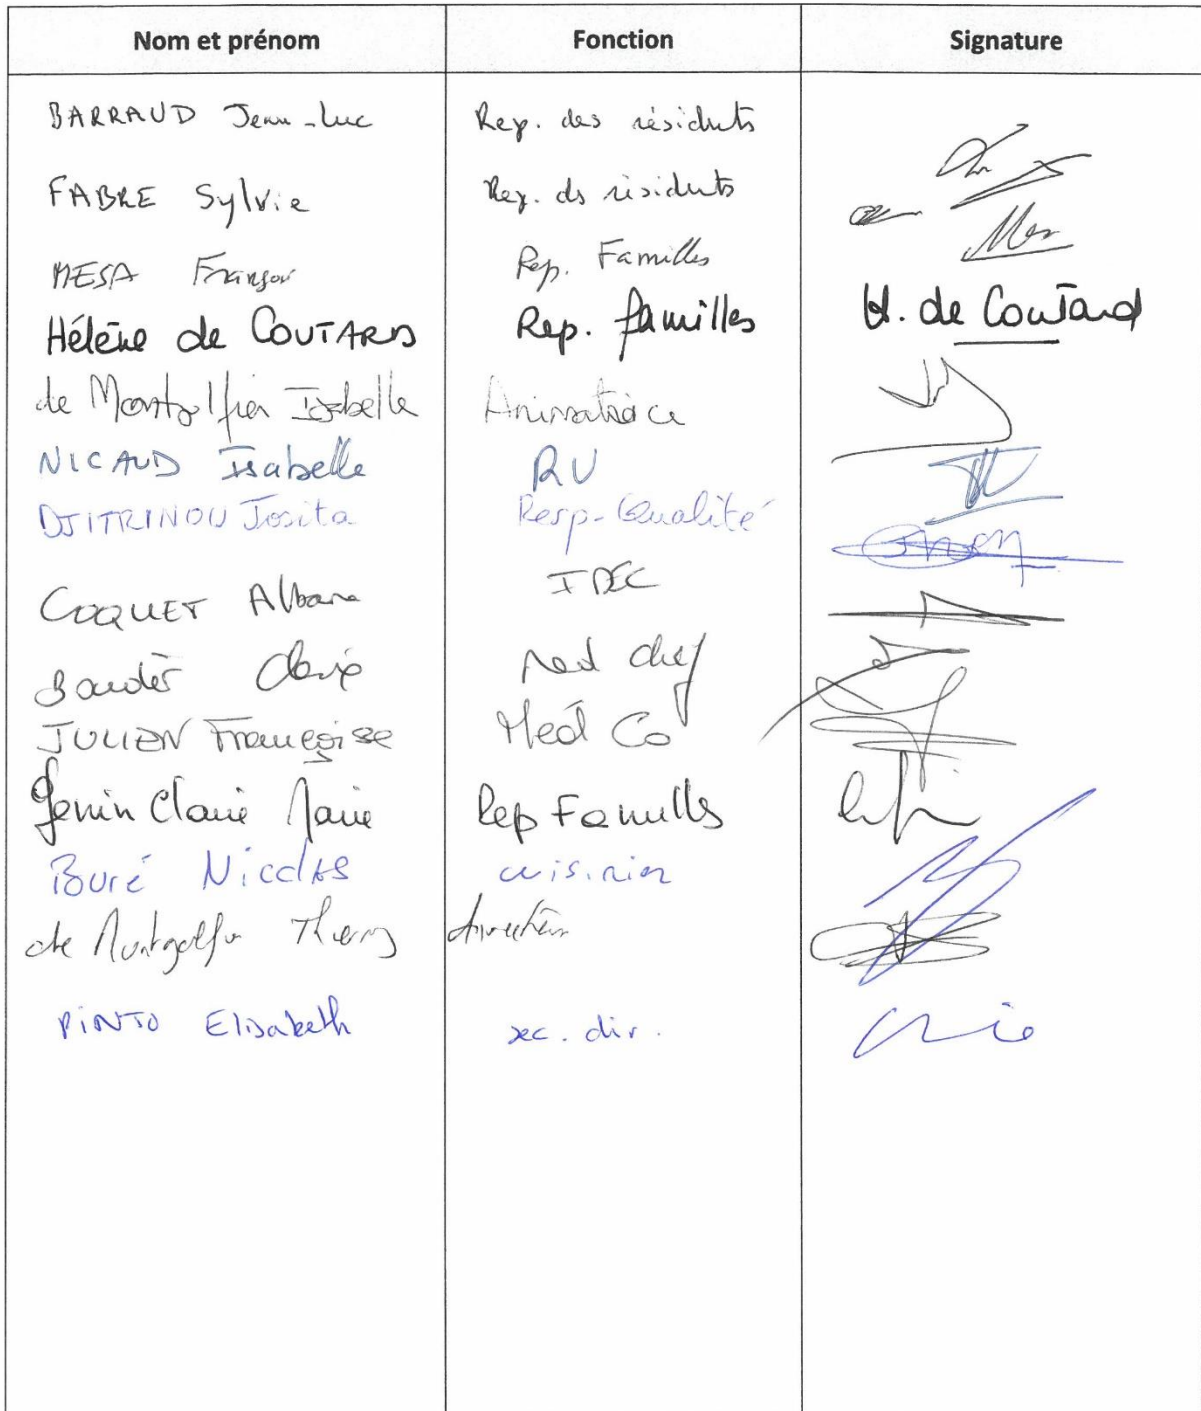 Nom et prénom Fonction Signature
BARRAUD Jean-Luc Rep. des résidents
FABRE Sylvie Rep. ds résidents
MESA Rep. Familles
Hélène de COUTARD Rep. familles H. de Coutard
de Montgolfier Isabelle Animatrice
NICAUD Isabelle RU
DJITRINOU Josita Resp-Qualité
COQUET Albane IDEC
Med chef
JULIEN Françoise Med Co
Genin Claire Marie Rep Familles
Buré Nicolas cuisinier
de Montgolfier Thierry
PINTO Elisabeth sec. dir.